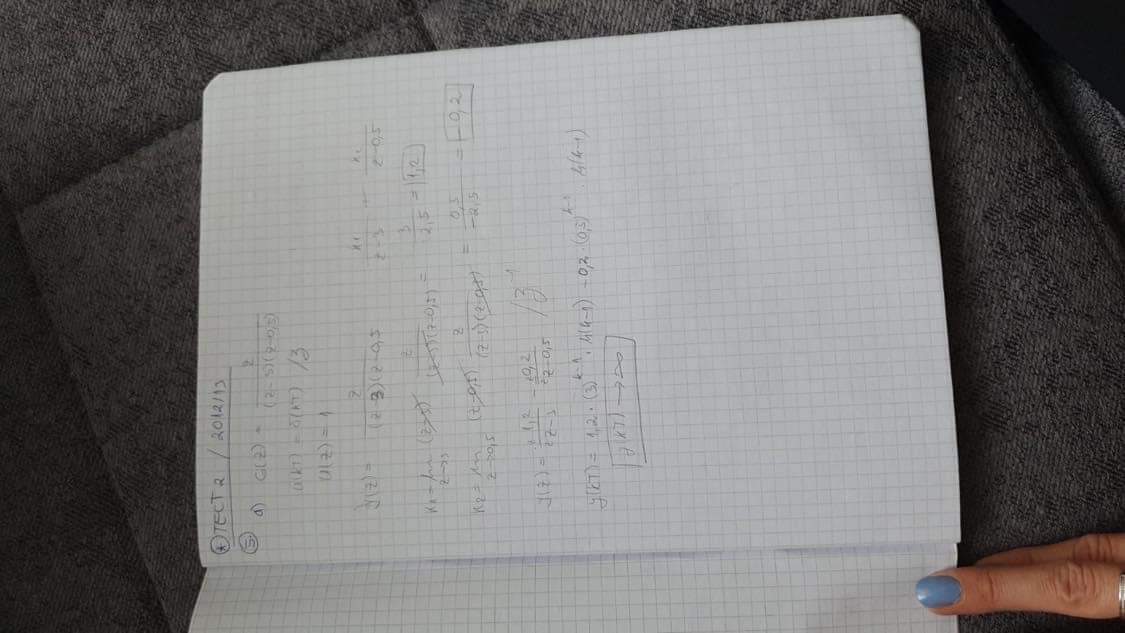 * ТЕСТ 2 / 2012/13
5 a) G(z) = z / (z-3)(z-0,5)
u(kT) = δ(kT) /Z
U(z) = 1
Y(z) = z / (z-3)(z-0,5) k1 / z-3 - k1 / z-0,5
k1 = lim z→3 (z-3) z / (z-3)(z-0,5) = 3 / 2,5 = 1,2
k2 = lim z→0,5 (z-0,5) z / (z-3)(z-0,5) = 0,5 / -2,5 = -0,2
Y(z) = z 1,2 / z z-3 - z 0,2 / z z-0,5 /Z⁻¹
y(kT) = 1,2 · (3)ᵏ⁻¹ · h(k-1) - 0,2 · (0,5)ᵏ⁻¹ · h(k-1)
y(kT) → ∞